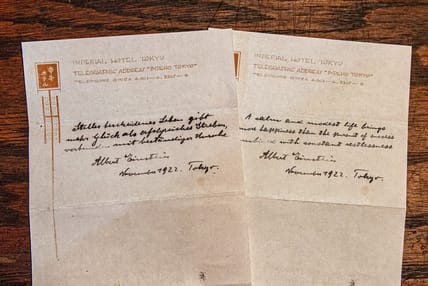 IMPERIAL HOTEL TOKYO
TELEGRAPHIC ADDRESS "IMPEHO TOKYO"
Stilles bescheidenes Leben gibt
mehr Glück als erfolgreiches Streben
verbunden mit beständiger Unruhe
Albert Einstein
November 1922. Tokyo.
IMPERIAL HOTEL TOKYO
TELEGRAPHIC ADDRESS "IMPEHO TOKYO"
A calm and modest life brings
more happiness than the pursuit of success
with constant restlessness
Albert Einstein
November 1922. Tokyo.